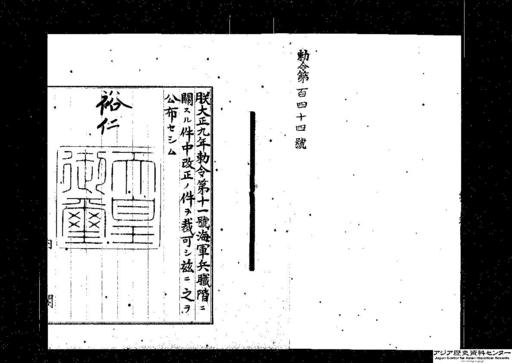 勅令第百四十四號
朕大正九年勅令第十一號海軍兵職階ニ
關スル件中改正ノ件ヲ裁可シ茲ニ之ヲ
公布セシム
裕仁
天皇
御璽
内閣
アジア歴史資料センター
Japan Center for Asian Historical Records